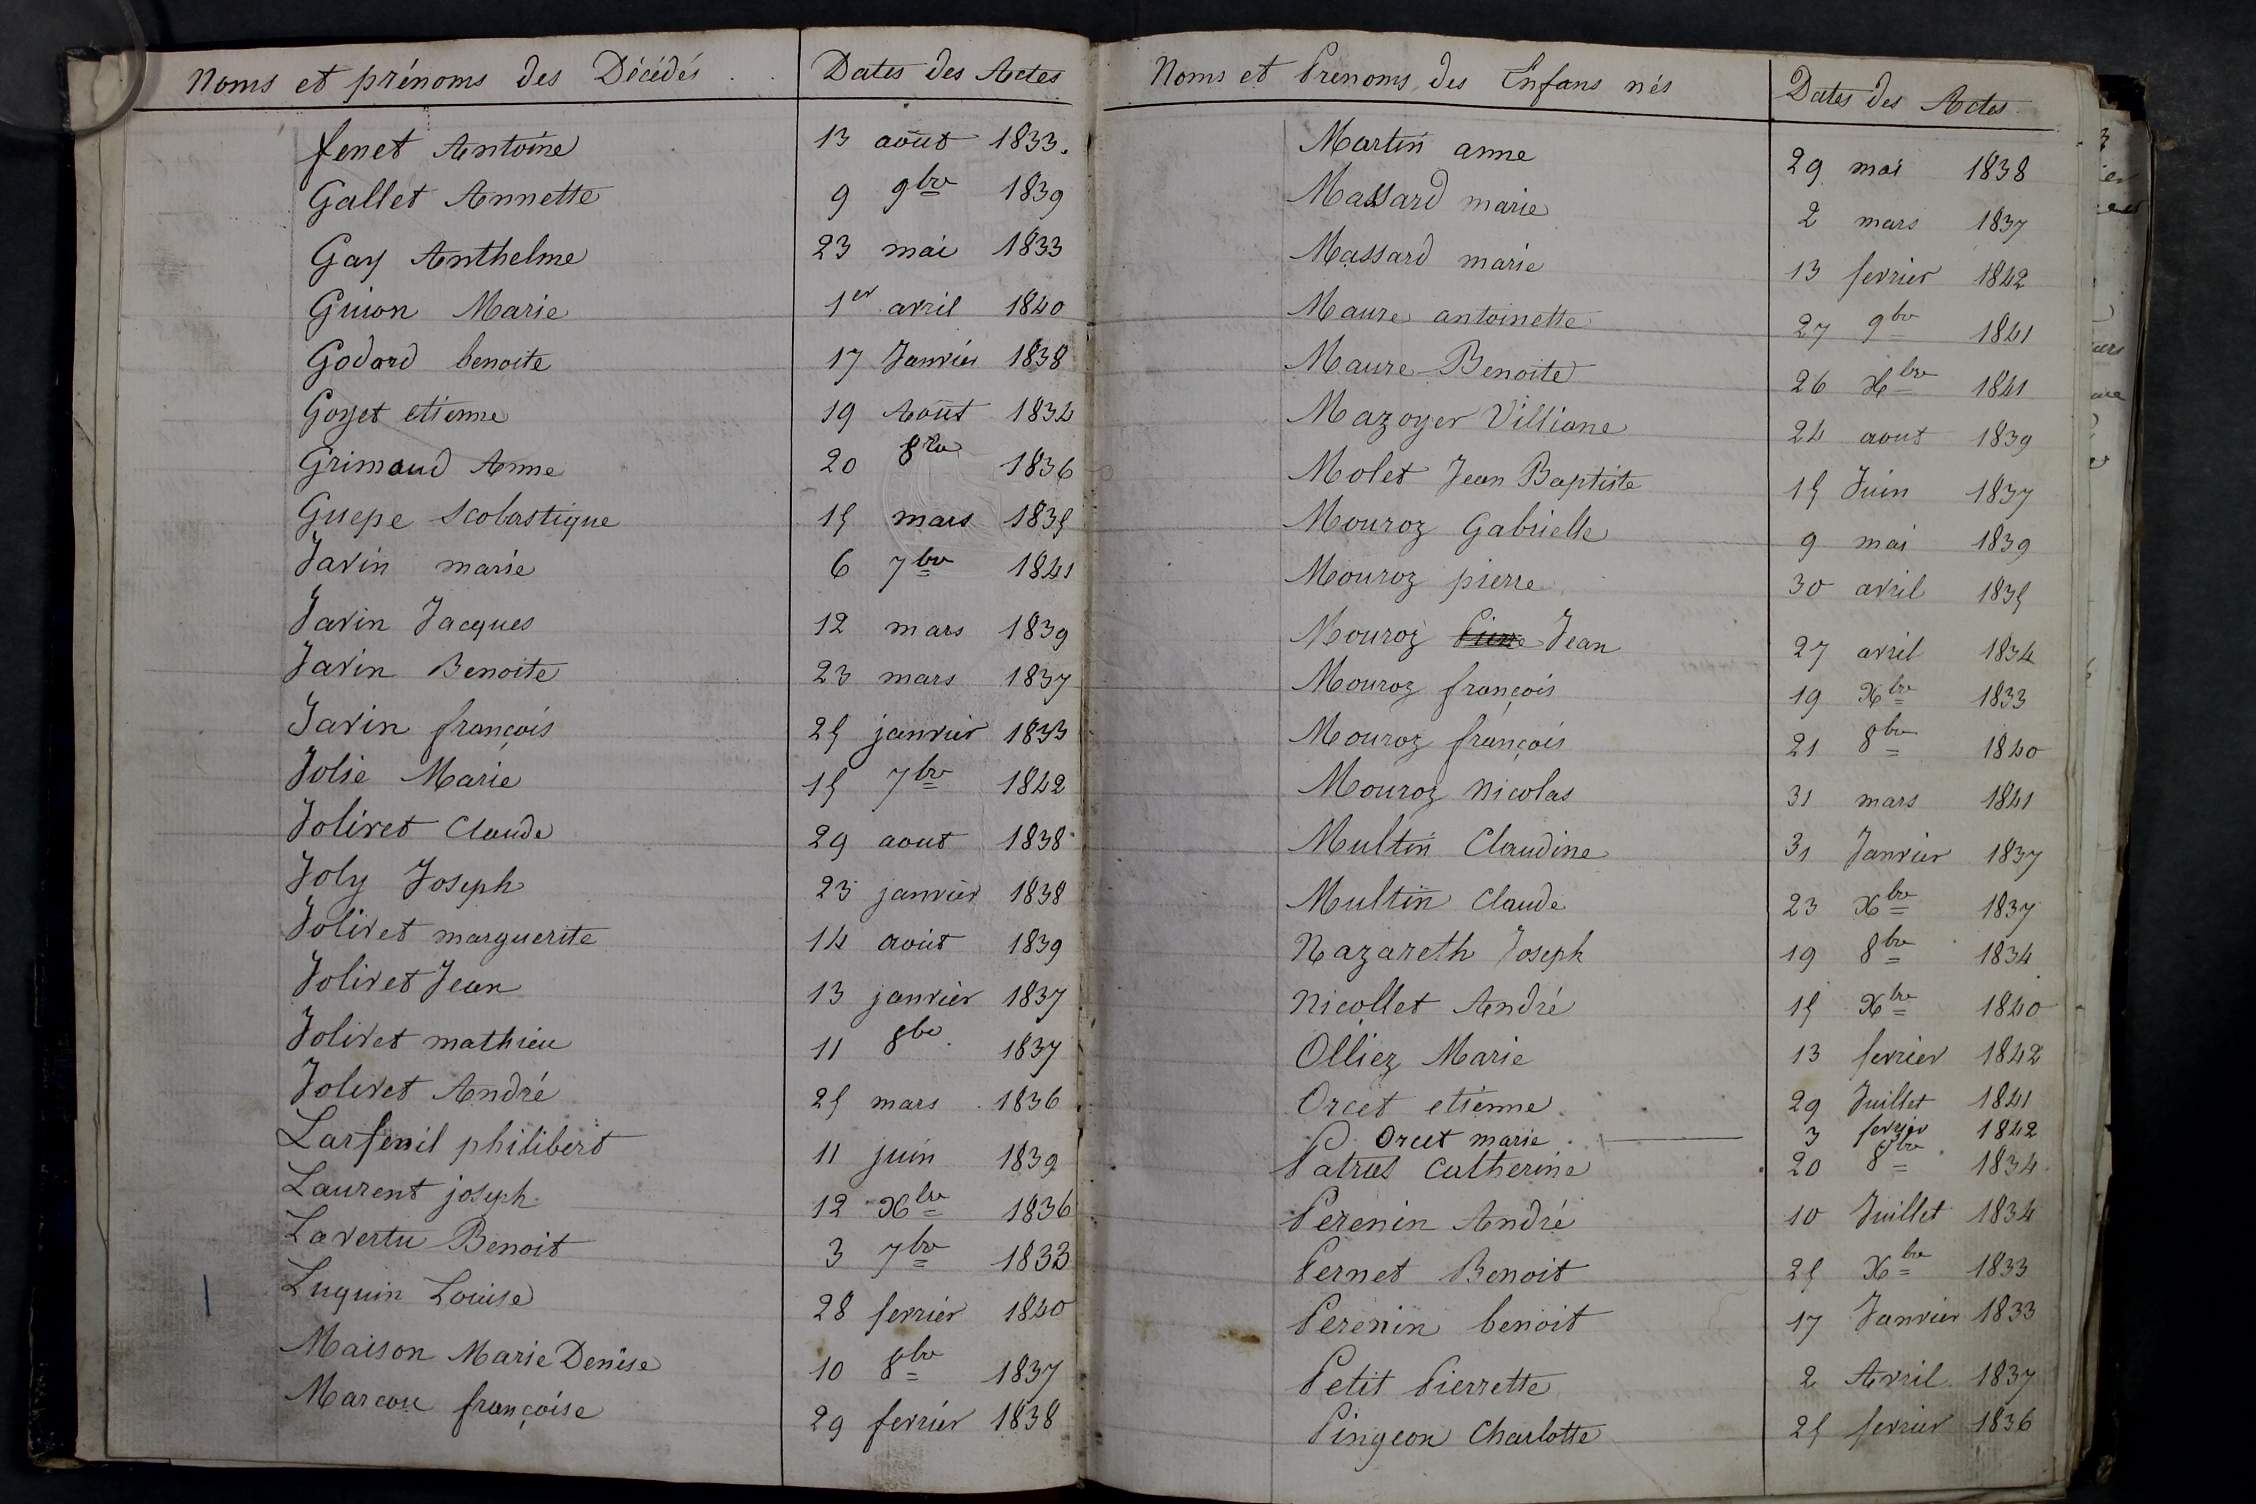 Noms et prénoms des Décédés . . Dates des Actes
fenet Antoine 13 août 1833.
Gallet Annette 9 9bre 1839
Gay Anthelme 23 mai 1833
Guion Marie 1er avril 1840
Godard benoite 17 Janvier 1838
Goyet etienne 19 Août 1834
Grimaud Anne 20 8bre 1836
Guepe Scolastique 15 mars 1835
Javin marie 6 7bre 1841
Javin Jacques 12 mars 1839
Javin Benoite 23 mars 1837
Javin françois 25 janvier 1833
Jolie Marie 15 7bre 1842
Jolivet Claude 29 aout 1838
Joly Joseph 23 janvier 1838
Jolivet marguerite 14 août 1839
Jolivet Jean 13 janvier 1837
Jolivet mathieu 11 8bre 1837
Jolivet André 25 mars 1836
Larfenil philibert 11 juin 1839
Laurent joseph 12 Xbre 1836
Lavertu Benoit 3 7bre 1833
Luquin Louise 28 fevrier 1840
Maison Marie Denise 10 8bre 1837
Marcou françoise 29 fevrier 1838
Noms et Prenoms des Enfans nés Dates des Actes
Martin anne 29 mai 1838
Massard marie 2 mars 1837
Massard marie 13 fevrier 1842
Maure antoinette 27 9bre 1841
Maure Benoite 26 Xbre 1841
Mazoyer Villiane 24 aout 1839
Molet Jean Baptiste 15 Juin 1837
Mouroz Gabrielle 9 mai 1839
Mouroz pierre 30 avril 1835
Mouroz Pierre Jean 27 avril 1834
Mouroz françois 19 Xbre 1833
Mouroz françois 21 8bre 1840
Mouroz Nicolas 31 mars 1841
Multin Claudine 31 Janvier 1837
Multin Claude 23 Xbre 1837
Nazareth Joseph 19 8bre 1834
Nicollet André 15 Xbre 1840
Olliez Marie 13 fevrier 1842
Orcet etienne 29 Juillet 1841
Orcet marie 3 fevrier 1842
Patras Catherine 20 8bre 1834
Perenin André 10 Juillet 1834
Pernet Benoit 25 Xbre 1833
Perenin benoit 17 Janvier 1833
Petit Pierrette 2 Avril 1837
Pingeon Charlotte 25 fevrier 1836